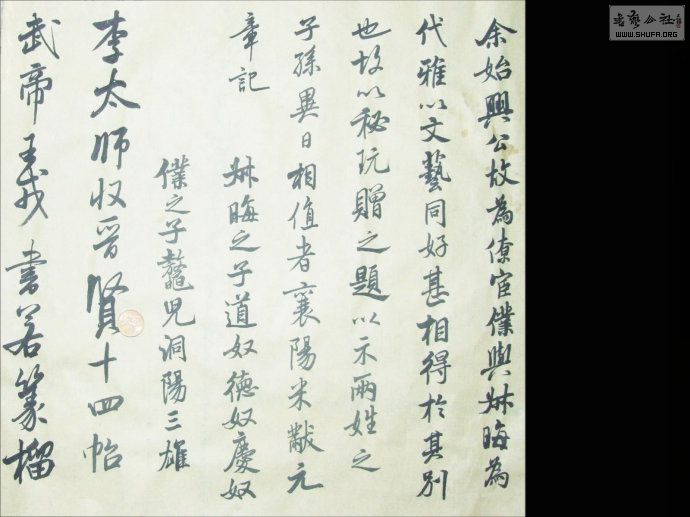 余始興公故為僚宦僕與𤱶晦為
代雅以文藝同好甚相得於其別
也故以秘玩贈之題以示兩姓之
子孫異日相值者襄陽米黻元
章記
𤱶晦之子道奴德奴慶奴
僕之子鼇兒洞陽三雄
李太師收晉賢十四帖
武帝王戎書若篆榴
WWW.SHUFA.ORG